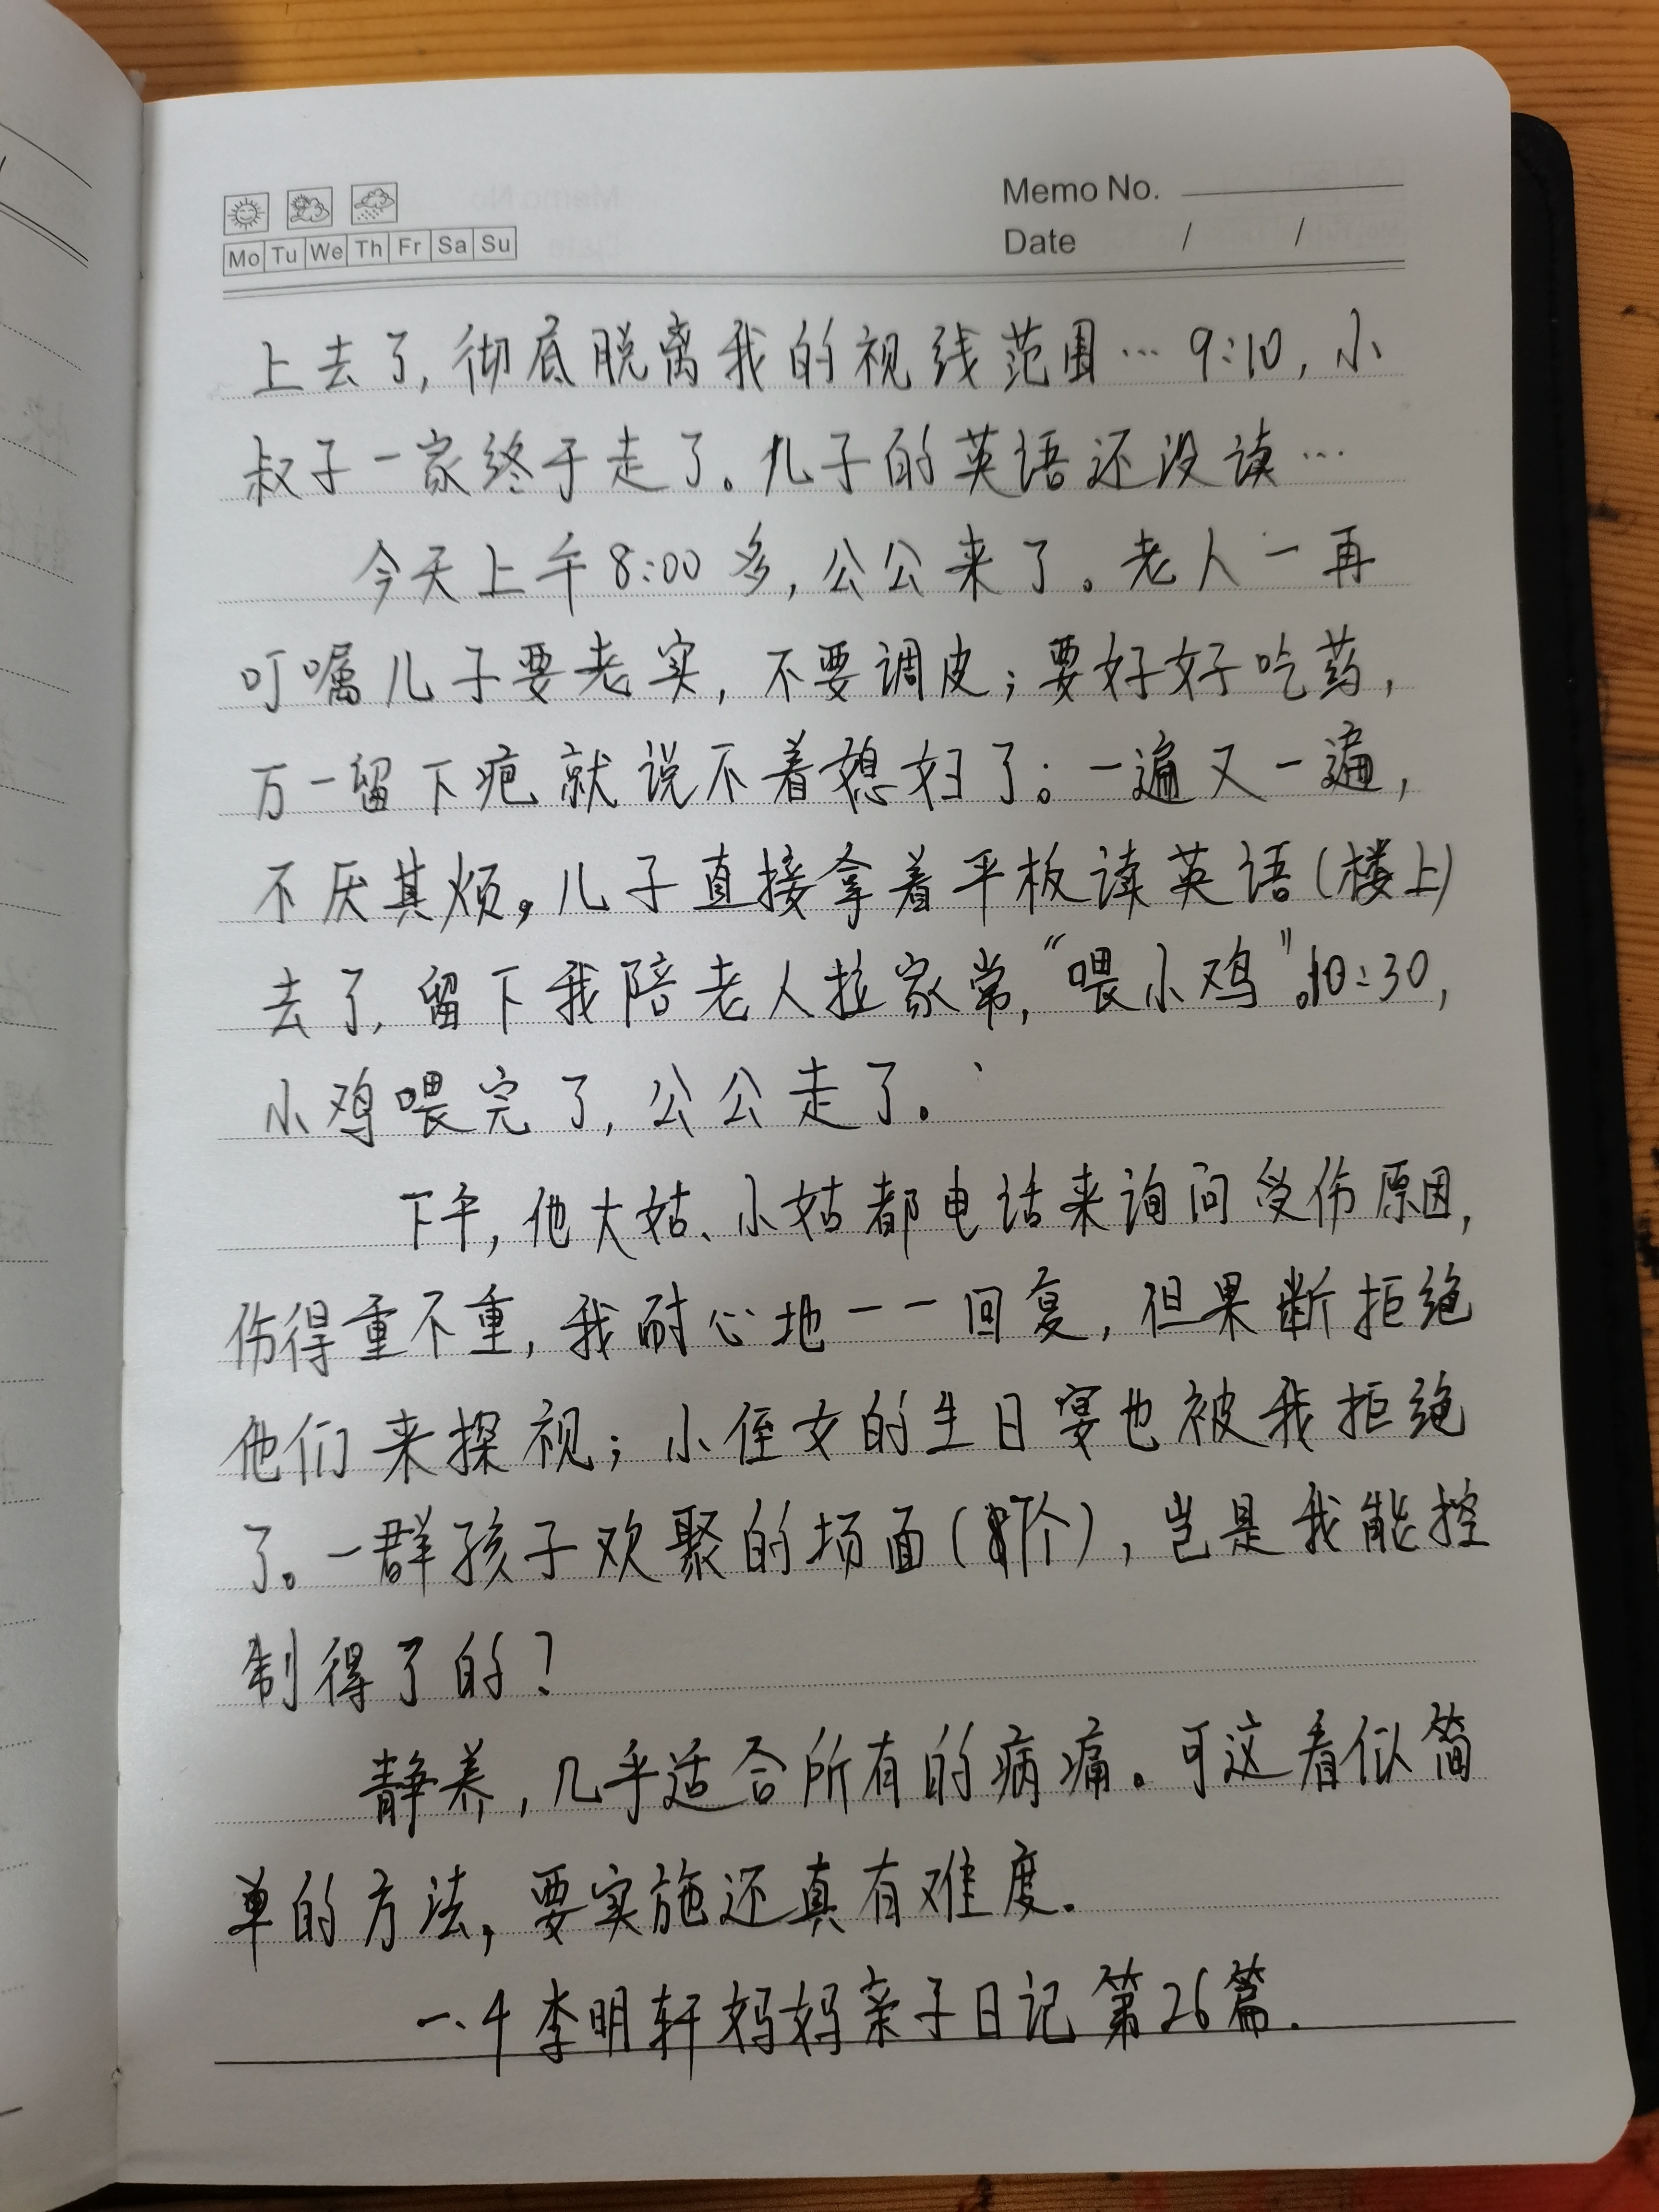 Memo No.
Mo Tu We Th Fr Sa Su
Date / /
上去了,彻底脱离我的视线范围…9:10,小
叔子一家终于走了。儿子的英语还没读…
今天上午8:00多,公公来了。老人一再
叮嘱儿子要老实,不要调皮;要好好吃药,
万一留下疤就说不着媳妇了。一遍又一遍,
不厌其烦。儿子直接拿着平板读英语(楼上)
去了,留下我陪老人拉家常,“喂小鸡”。10:30,
小鸡喂完了,公公走了。
下午,他大姑、小姑都电话来询问受伤原因,
伤得重不重,我耐心地一一回复,但果断拒绝
他们来探视;小侄女的生日宴也被我拒绝
了。一群孩子欢聚的场面(个),岂是我能控
制得了的?
静养,几乎适合所有的病痛。可这看似简
单的方法,要实施还真有难度。
一.4李明轩妈妈亲子日记第26篇.